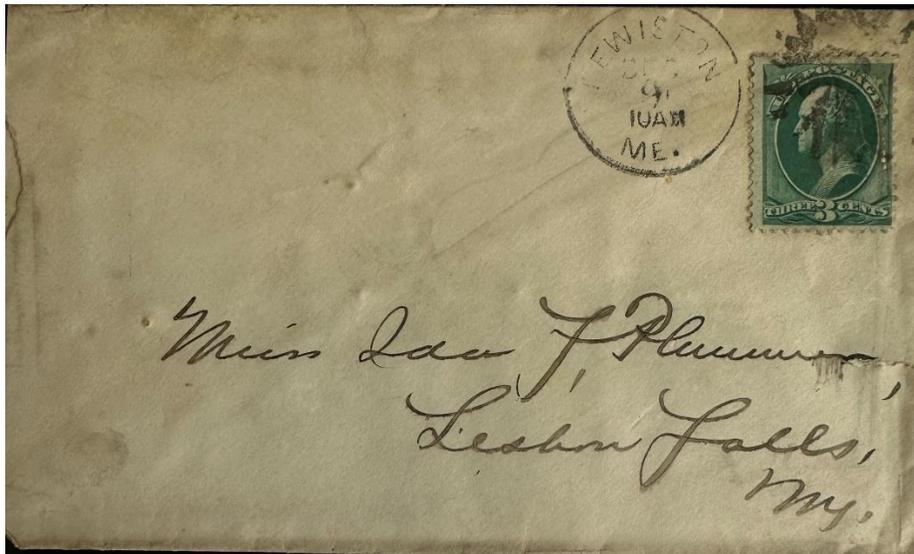 LEWISTON
DEC
9
10AM
ME.
U.S. POSTAGE
THREE 3 CENTS
Miss Ida F, Plummer,
Lisbon Falls,
Me.